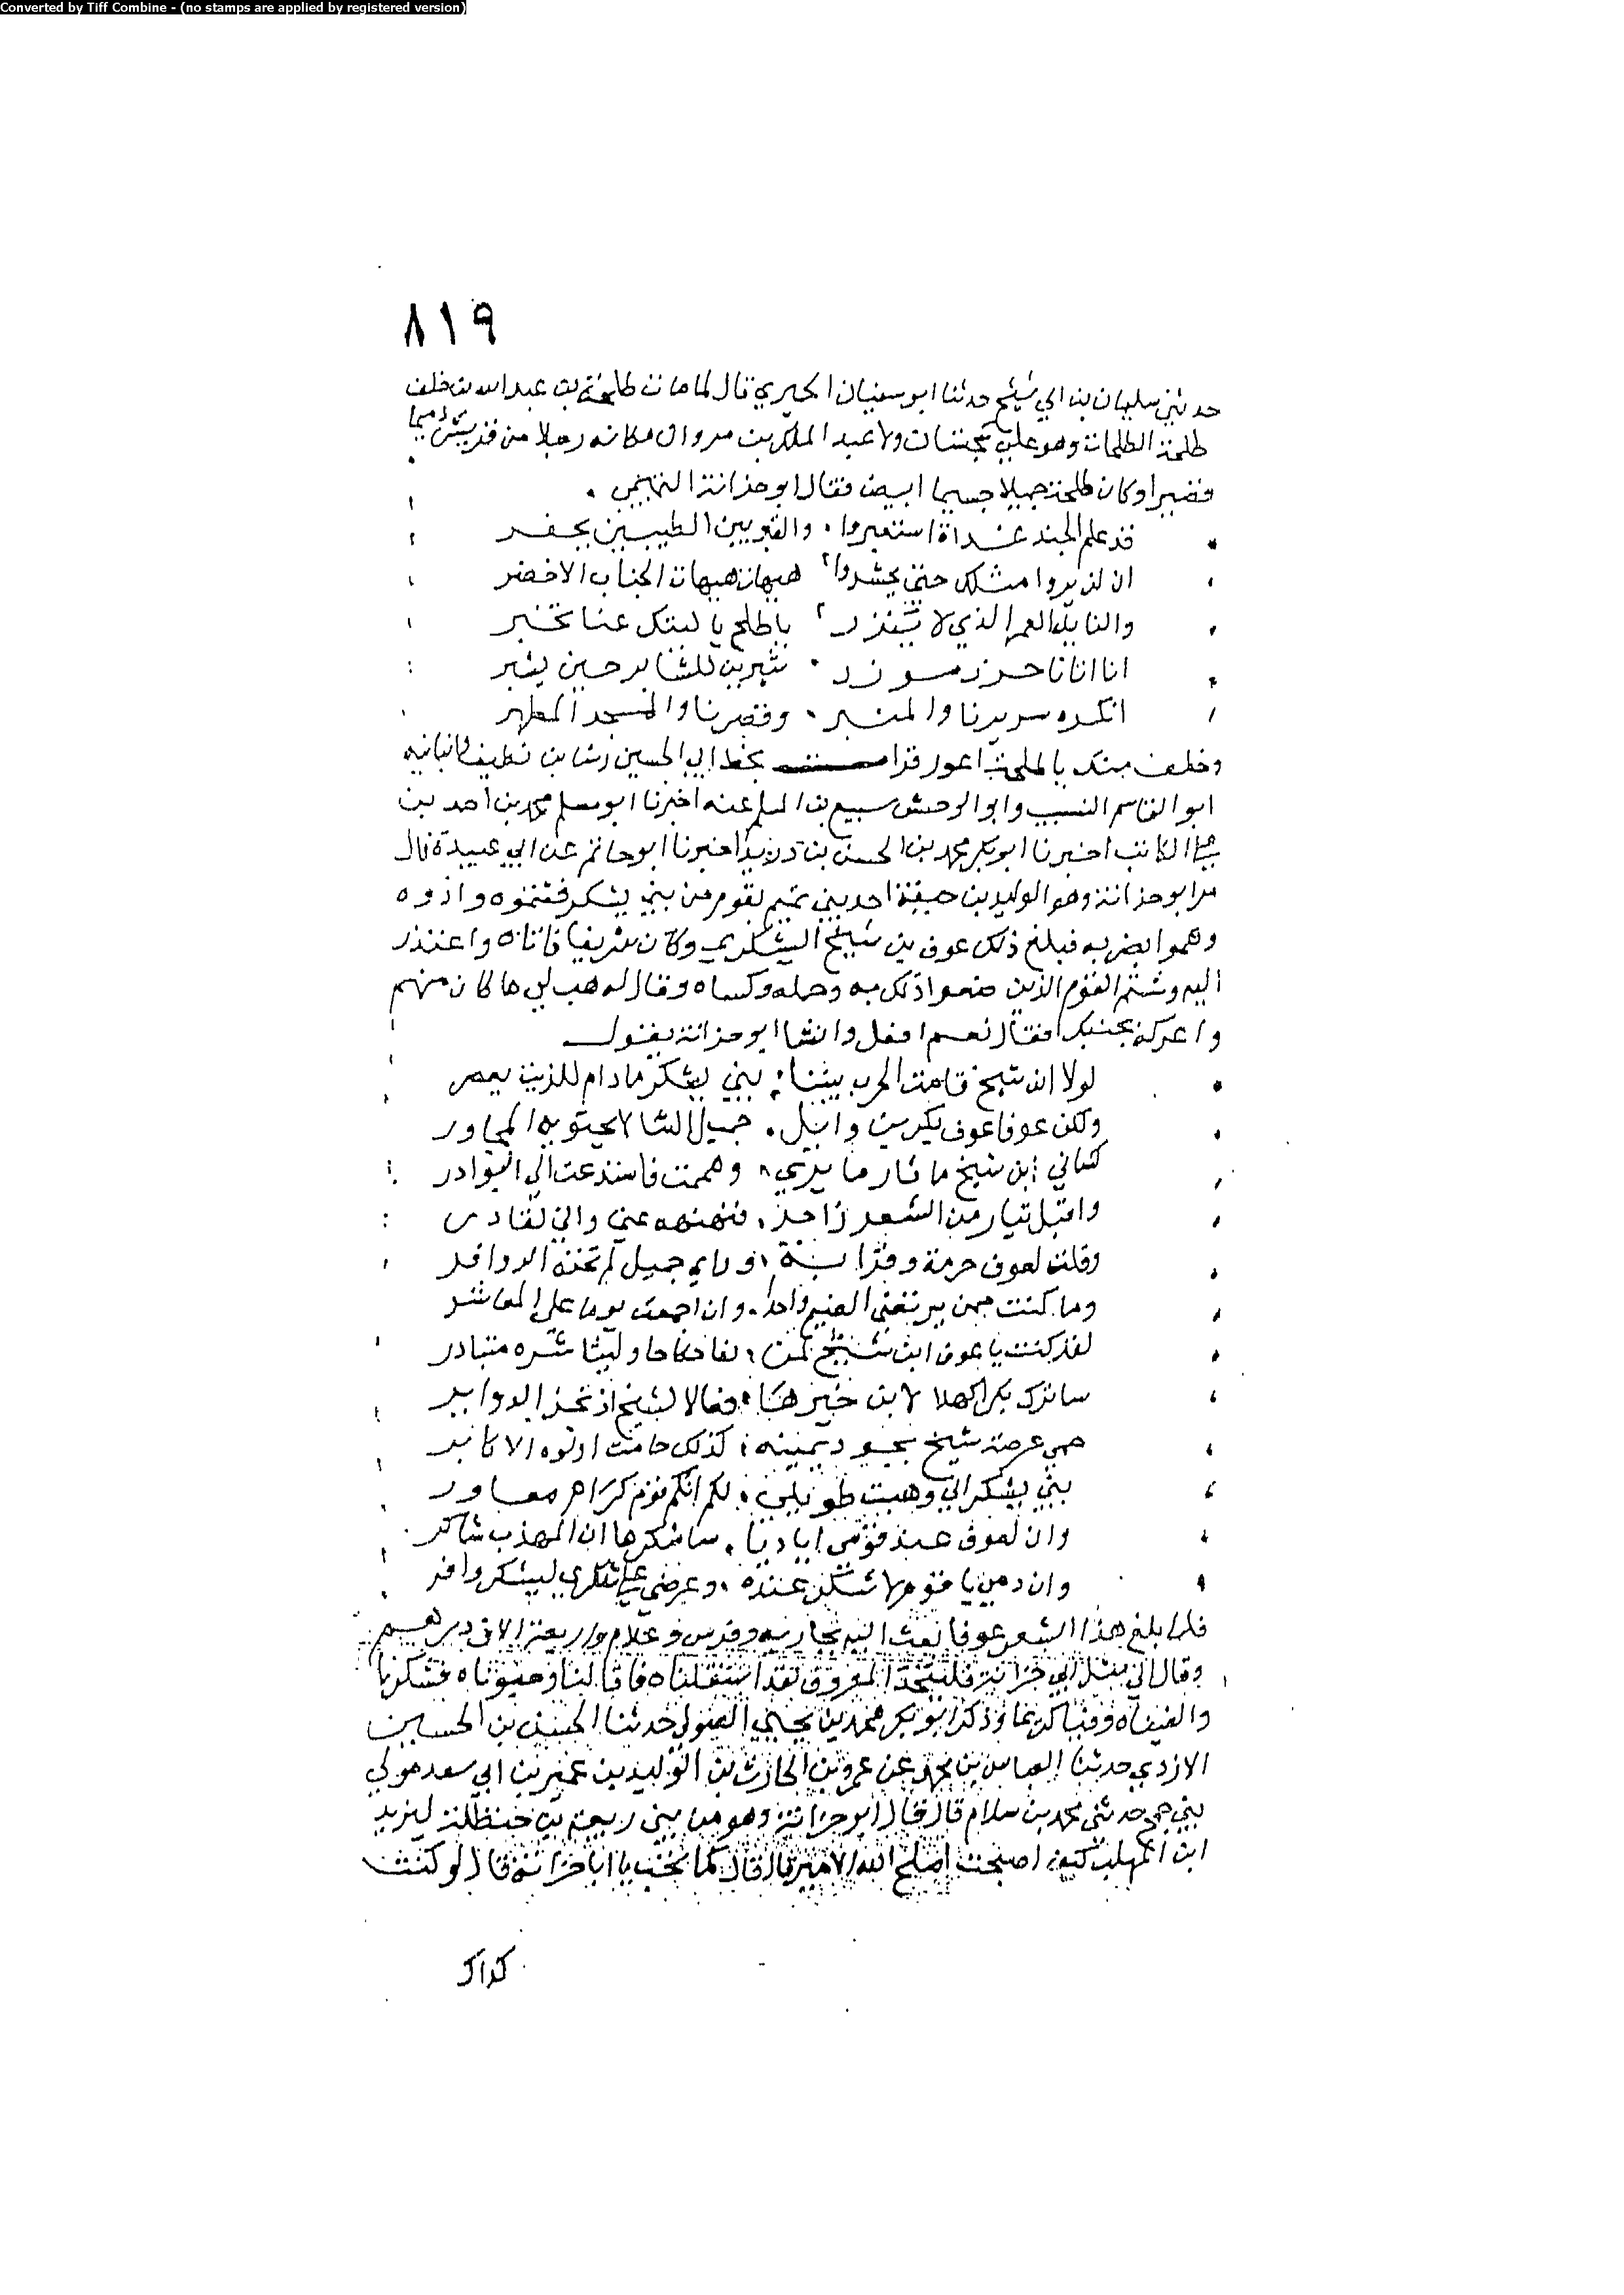 Converted by Tiff Combine - (no stamps are applied by registered version)
٨١٩
حدثني سليمان بن ابي شيخ حدثنا ابو سفيان الحميري قال لما مات طلحة بن عبد الله بن خلف
طلحة الطلحات وهو على سجستان ولا عبد الملك بن مروان مكانه رجلا من قريش دميما
قصيرا وكان طلحة جميلا جسيما ابيض فقال ابو حزانة التميمي
قد علم الجند غداة استعبروا والقبر بين الطيبين يحفر
ان لن يروا مثلك حتى يحشروا هيهات هيهات الجناب الاخضر
والنايل الغمر الذي لا ينزر يا طلح يا ليتك عنا تخبر
انا اتانا حرز موزر شبرين للشابر حين يشبر
انكره سريرنا والمنبر وقصرنا والمسجد المطهر
وخلف منك يا طلح اعور قرات بخط ابي الحسين رشا بن نظيف وانبانيه
ابو القاسم النسيب وابو الوحش سبيع بن المسلم عنه اخبرنا ابو مسلم محمد بن احمد بن
علي الكاتب اخبرنا ابو بكر محمد بن الحسن بن دريد اخبرنا ابو حاتم عن ابي عبيدة قال
مر ابو حزانة وهو الوليد بن حنيفة احد بني تميم بقوم من بني يشكر فشتموه واذوه
وهموا بضربه فبلغ ذلك عوف بن شيخ اليشكري وكان شريفا فاتاه واعتذر
اليه وشتم القوم الذين صنعوا ذلك به وحمله وكساه وقال له هب لي ما كان منهم
واعركه بجنبك فقال نعم افعل وانشا ابو حزانة يقول
لولا ابن شيخ قامت الحرب بيننا بني يشكر ما دام للزيت يعصر
ولكن عوفا عوف بكر بن وايل جميل الثنا لا يجتويه المجاور
كفاني ابن شيخ ما ثار ما يدي وهممت فاستدعت الي البوادر
واقبل تيار من الشعر زاخر فنهنهه عني واني لقادر
وقلت لعوف حرمة وقرابة وراي جميل لم تخنه
وما كنت ممن يرتغي الضيم واحدا وان اجمعت يوما علي المعاشر
لقد كنت يا عوف ابن شيخ لمن وليثا شره متبادر
ساترك بكرا كلها لابن خيرها فعالا لشيخ اذ تحز الدوابر
حمى عرضه شيخ بجود يمينه كذلك حامت الاكابر
بني يشكر اني وهبت طوايلي لكم انكم قوم كرام معاور
وان لعوف عند قومي اياديا ساشكرها ان المهذب شاكر
وان دمي يا قوم لا شك عنده وعرضي على شكري ليشكر وافر
فلما بلغ هذا الشعر عوفا بعث اليه بجارية وفرس وغلام واربعة الاف درهم
وقال الى مثل ابي حزانة فليتخذ المعروف لقد استقلناه فاقالنا فشكرنا
والفيناه كريما وذكر ابو بكر محمد بن يحيى الصولي حدثنا الحسن بن الحسين
الازدي حدثنا العباس بن محمد عن عمرو بن الحارث بن الوليد بن عمير بن ابي سعد مولي
بني جمح حدثني محمد بن سلام قال قال ابو حزانة وهو من بني ربيعة بن حنظلة ليزيد
ابن المهلب كيف اصبحت اصلح الله الامير قال قال كما تحب يا ابا حزانة قال لو كنت
كذاك